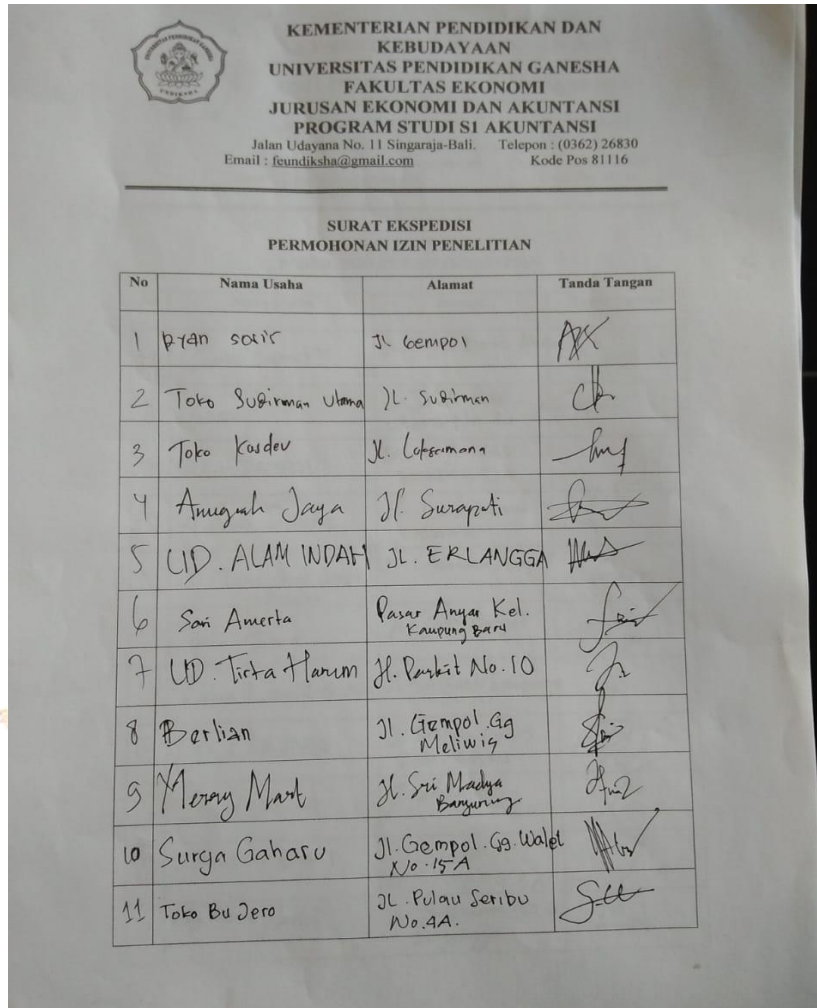 KEMENTERIAN PENDIDIKAN DAN
KEBUDAYAAN
UNIVERSITAS PENDIDIKAN GANESHA
FAKULTAS EKONOMI
JURUSAN EKONOMI DAN AKUNTANSI
PROGRAM STUDI S1 AKUNTANSI
Jalan Udayana No. 11 Singaraja-Bali. Telepon : (0362) 26830
Email : feundiksha@gmail.com Kode Pos 81116
SURAT EKSPEDISI
PERMOHONAN IZIN PENELITIAN
No Nama Usaha Alamat Tanda Tangan
1 Jl. Gempol
2 Toko Sudirman Utama JL. Sudirman
3 Toko Kasdev Jl.
4 Anugrah Jaya Jl. Surapati
5 UD. ALAM INDAH JL. ERLANGGA
6 Sari Amerta Pasar Anyar Kel.
Kampung Baru
7 UD. Tirta Harum Jl. Parkit No. 10
8 Berlian Jl. Gempol. Gg
Meliwis
9 Merry Mart Jl. Sri Madya
Banyuning
10 Surga Gaharu Jl. Gempol. Gg. Walet
No. 15A
11 Toko Bu Jero JL. Pulau Seribu
No. 4A.